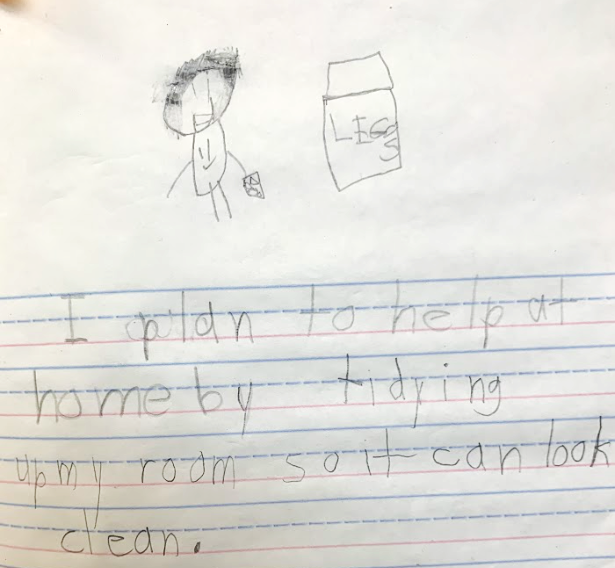 LEGO
S
I plan to help at
home by tidying
up my room so it can look
clean.